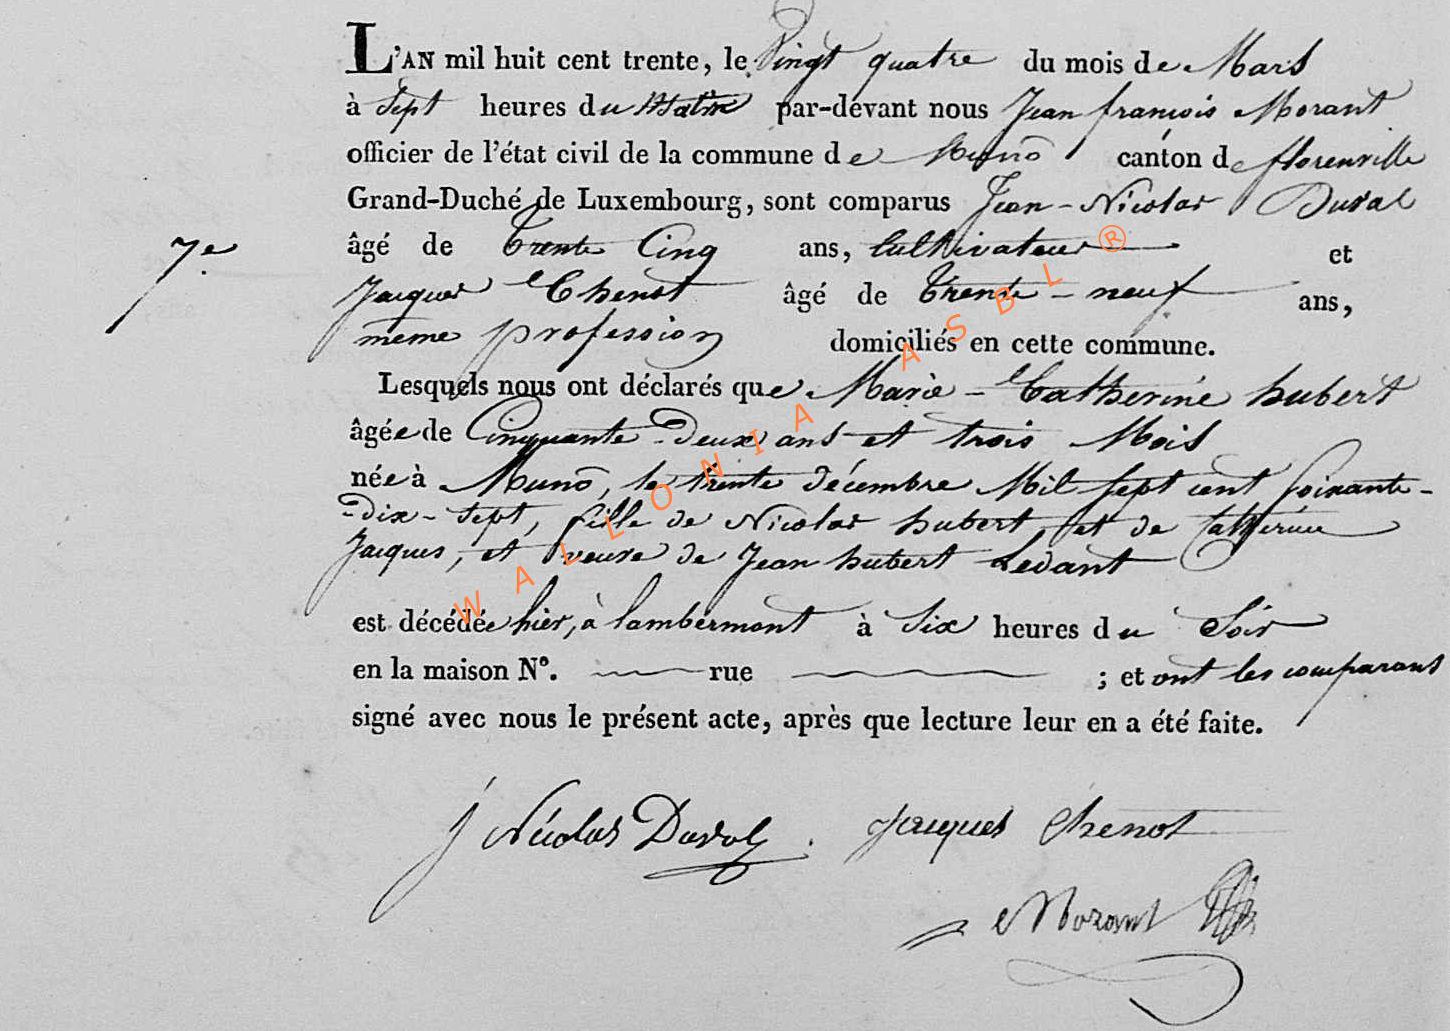 L'AN mil huit cent trente, le Vingt quatre du mois de Mars
à Sept heures du Matin par-devant nous Jean françois Morant
officier de l'état civil de la commune de Muno canton de florenville
Grand-Duché de Luxembourg, sont comparus Jean-Nicolas Duval
7e âgé de trente Cinq ans, Cultivateur et
Jacques Chenot âgé de trente-neuf ans,
même profession domiciliés en cette commune.
Lesquels nous ont déclarés que Marie-Catherine hubert
âgée de Cinquante-Deux ans et trois Mois
née à Muno, le trente décembre Mil sept cent soixante-
-dix-sept, fille de Nicolas hubert, et de Catherine
Jacques, et veuve de Jean hubert Ledant
est décédée hier, à lambermont à Six heures du Soir
en la maison N°. rue ; et ont les comparans
signé avec nous le présent acte, après que lecture leur en a été faite.
J Nicolas Duval. Jacques Chenot
Morant
WALLONIA ASBL ®